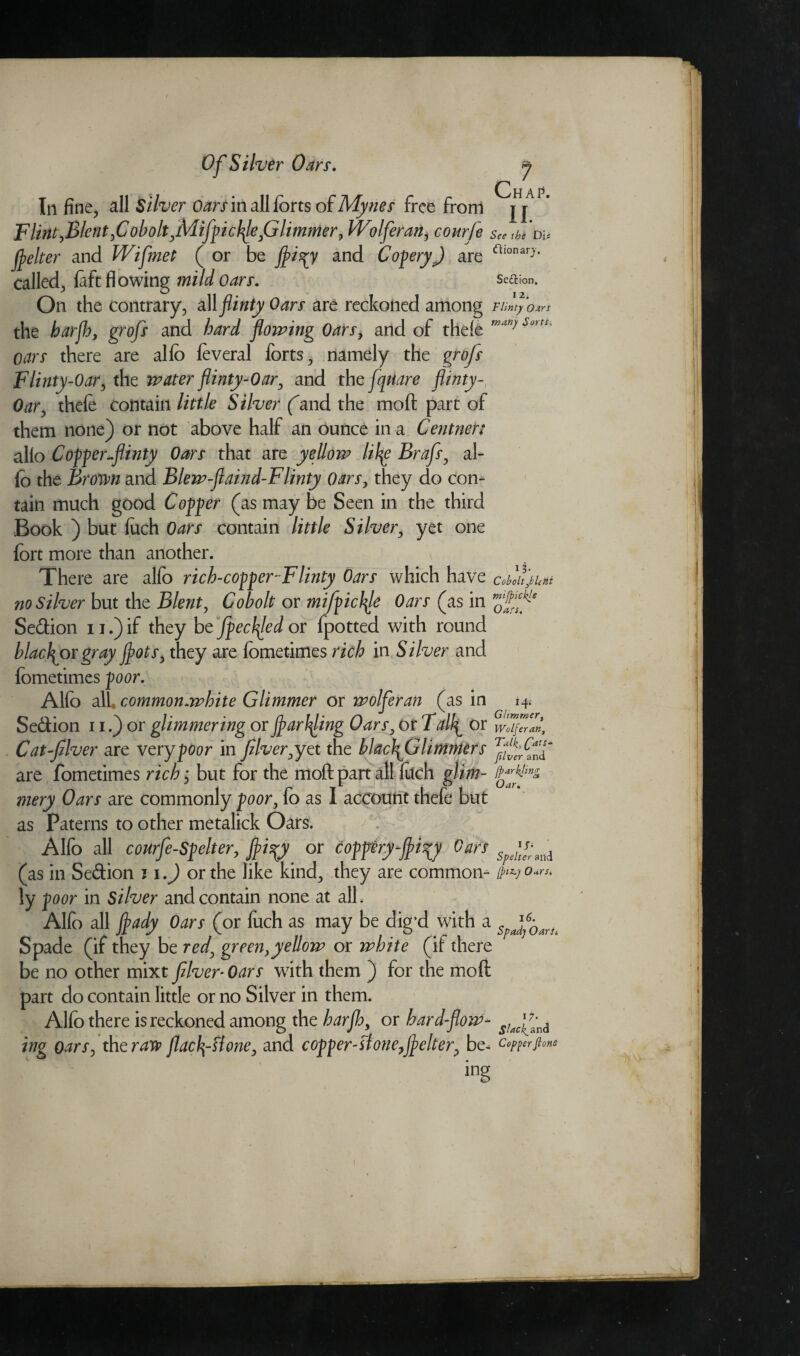 Of Silver Oars. 7
Chap.
II.
In fine, all Silver oars in all sorts of Mynes free from
Flint,Blent,Cobolt,Mispickle,Glimmer, Wolferan, course
spelter and Wismet ( or be spizy and Copery) are
called, fast flowing mild oars.
See the Di-
ctionary.
Section.
On the contrary, all flinty Oars are reckoned among
the harsh, gross and hard flowing Oars, and of these
oars there are also several sorts, namely the gross
Flinty-Oar, the water flinty-Oar, and the square flinty-
Oar, these contain little Silver (and the most part of
them none) or not above half an ounce in a Centner:
also Copper-flinty Oars that are yellow like Brass, al-
so the Brown and Blew-staind-Flinty Oars, they do con-
tain much good Copper (as may be Seen in the third
Book ) but such Oars contain little Silver, yet one
sort more than another.
12.
Flinty Oars
many Sorts.
There are also rich-copper-Flinty Oars which have
no Silver but the Blent, Cobolt or mispickle Oars (as in
Section 11.) if they be speckled or spotted with round
black or gray spots, they are sometimes rich in Silver and
sometimes poor.
13.
Cobolt,blent
mispickle
Oars.
Also all common-white Glimmer or wolferan (as in
Section 11.) or glimmering or sparkling Oars, or Talk or
Cat-silver are very poor in silver,yet the black Glimmers
are sometimes rich; but for the most part all such glim-
mery Oars are commonly poor, so as I account these but
as Paterns to other metalick Oars.
14.
Glimmer,
Wolferan,
Talk, Cats-
silver and
sparkling
Oar.
Also all course-Spelter, spizy or coppery-spizy Oars
(as in Section 11.) or the like kind, they are common-
ly poor in Silver and contain none at all.
15.
Spelter and
spizy Oars.
Also all spady Oars (or such as may be dig'd with a
Spade (if they be red, green,yellow or white (if there
be no other mixt silver-Oars with them ) for the most
part do contain little or no Silver in them.
16.
Spady Oars.
Also there is reckoned among the harsh, or hard-flow-
ing oars, the raw slack-stone, and copper-stone,spelter, be-
17.
Slack and
Copper stone
ing